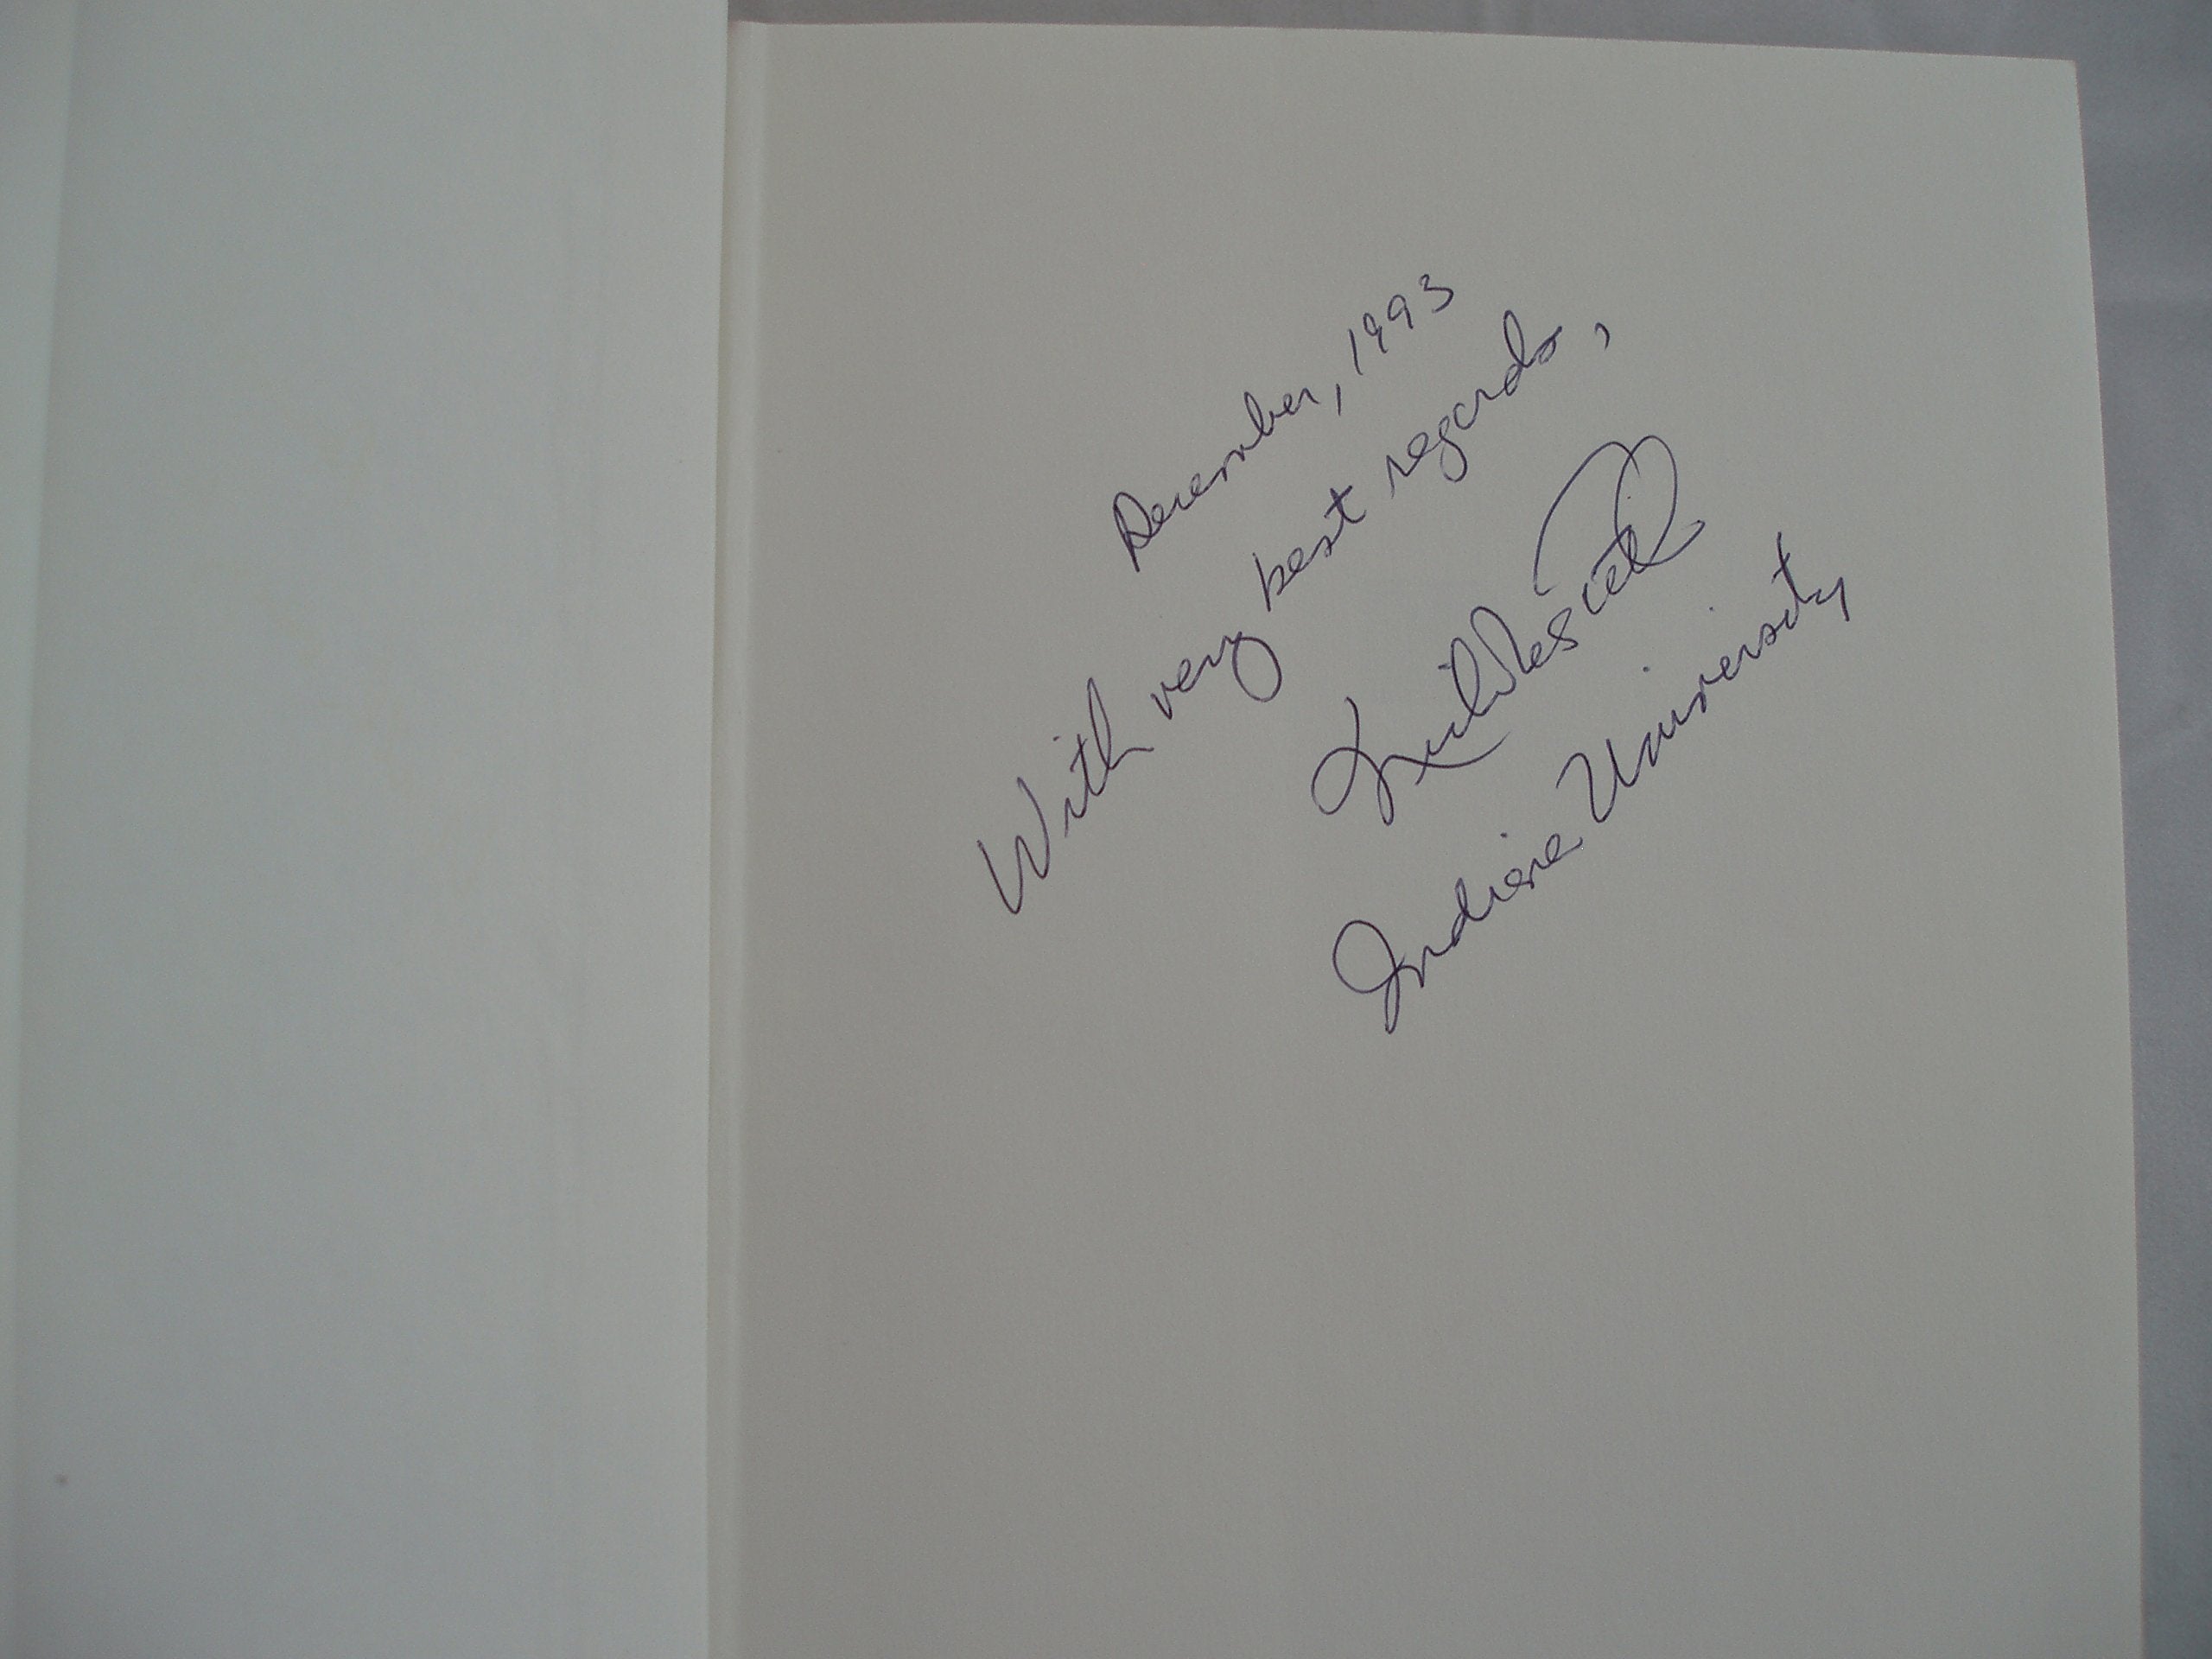 December, 1993
With very best regards,
Indiana University